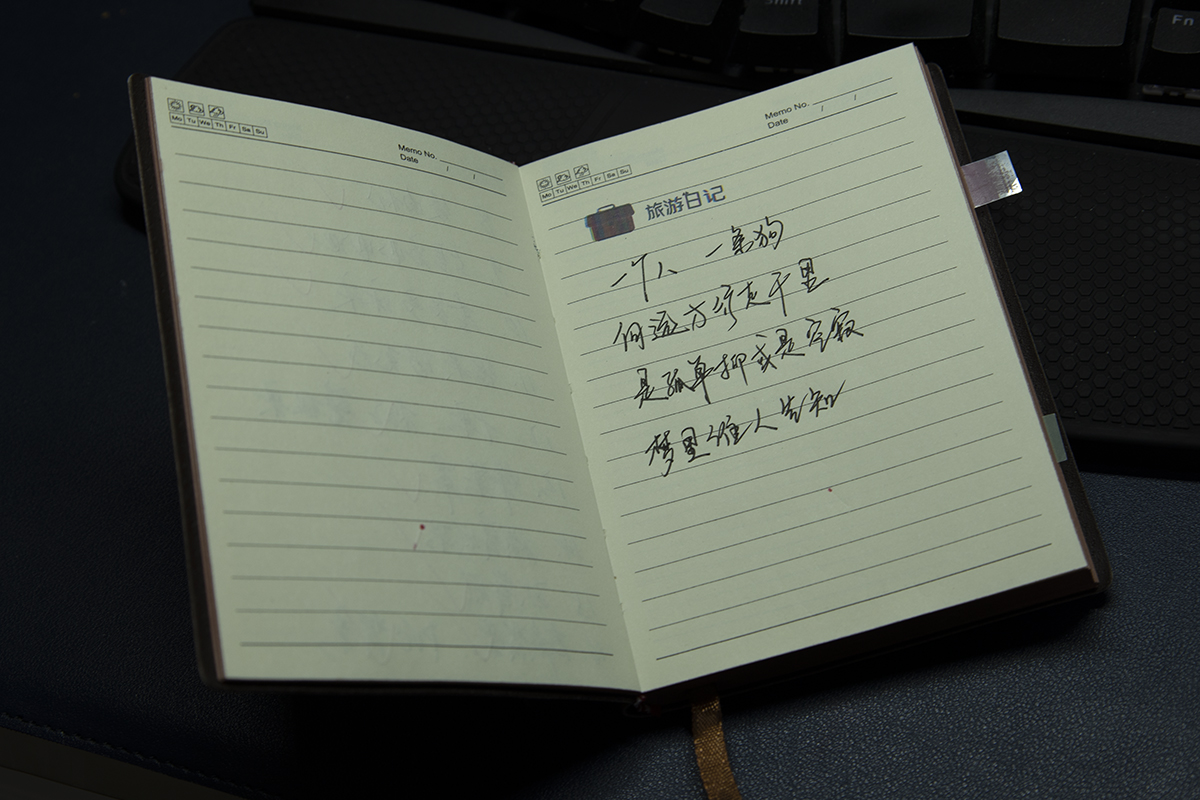 Shift
Fn
Mo Tu We Th Fr Sa Su
Memo No.
Date / /
Mo Tu We Th Fr Sa Su
Memo No.
Date / /
旅游日记
一个人 一条狗
向远方行走千里
是孤单抑或是空寂
梦里谁人告知